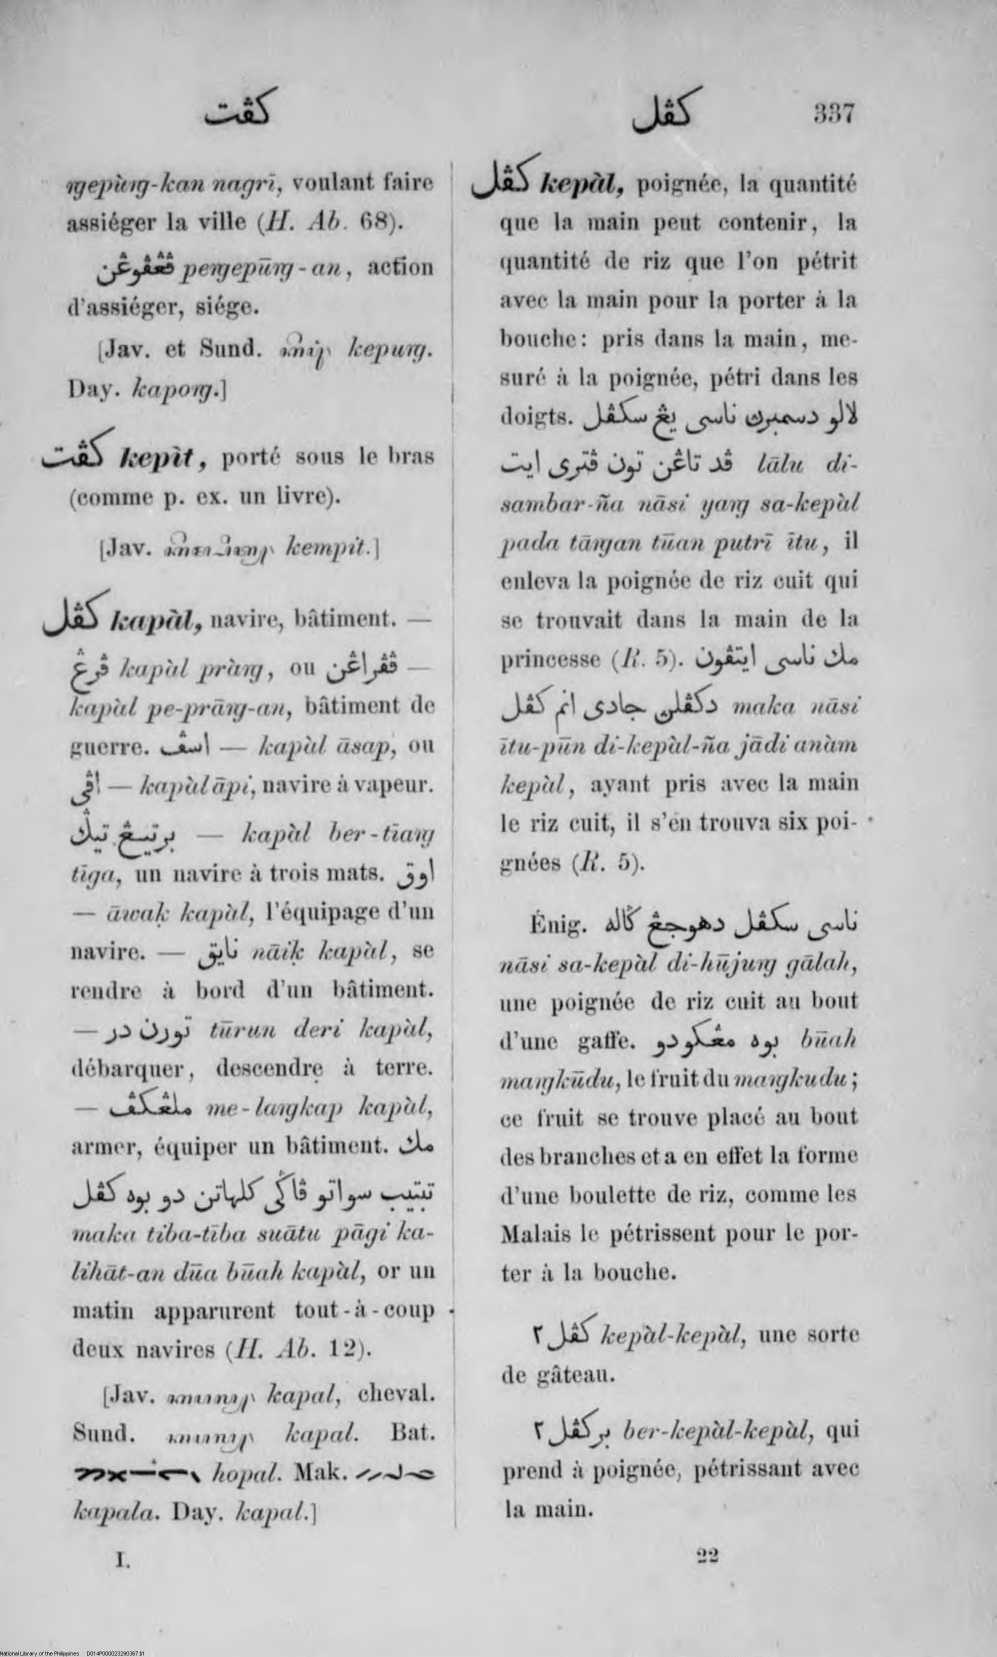 كڤت
كڤل 337
ꞑgepùꞑg-kan nagrī, voulant faire
assiéger la ville (H. Ab. 68).
peꞑgepūꞑg-an, action
d'assiéger, siége.
[Jav. et Sund. kepuꞑg.
Day. kapoꞑg.]
كڤت kepìt, porté sous le bras
(comme p. ex. un livre).
[Jav. kempit.]
كڤل kapàl, navire, bâtiment. —
ڤرڠ kapàl pràꞑg, ou ڤڤراڠن —
kapàl pe-prāꞑg-an, bâtiment de
guerre. اسڤ — kapàl āsap, ou
اڤي — kapàl āpi, navire à vapeur.
برتيڠ تيݢ — kapàl ber-tīaꞑg
tīga, un navire à trois mats. اوق
— āwaḳ kapàl, l'équipage d'un
navire. — نايق nāiḳ kapàl, se
rendre à bord d'un bâtiment.
— تورن در tūrun deri kapàl,
débarquer, descendre à terre.
— ملڠكڤ me-laꞑgkap kapàl,
armer, équiper un bâtiment. مك
تبتيب سواتو ڤاݢي كلهاتن دو بوه كڤل
maka tiba-tība suātu pāgi ka-
lihāt-an dūa būah kapàl, or un
matin apparurent tout-à-coup
deux navires (H. Ab. 12).
[Jav. kapal, cheval.
Sund. kapal. Bat.
hopal. Mak.
kapala. Day. kapal.]
I.
كڤل kepàl, poignée, la quantité
que la main peut contenir, la
quantité de riz que l'on pétrit
avec la main pour la porter à la
bouche: pris dans la main, me-
suré à la poignée, pétri dans les
doigts. لالو دسمبرڽ ناسي يڠ سكڤل
ڤد تاڠن تون ڤتري ايت lālu di-
sambar-ña nāsi yaꞑg sa-kepàl
pada tāꞑgan tūan putrī ītu, il
enleva la poignée de riz cuit qui
se trouvait dans la main de la
princesse (R. 5). مك ناسي ايتڤون
دكڤلڽ جادي انم كڤل maka nāsi
ītu-pūn di-kepàl-ña jādi anàm
kepàl, ayant pris avec la main
le riz cuit, il s'en trouva six poi-
gnées (R. 5).
Énig. ناسي سكڤل دهوجڠ ݢاله
nāsi sa-kepàl di-hūjuꞑg gālah,
une poignée de riz cuit au bout
d'une gaffe. بوه مڠكودو būah
maꞑgkūdu, le fruit du maꞑgkudu;
ce fruit se trouve placé au bout
des branches et a en effet la forme
d'une boulette de riz, comme les
Malais le pétrissent pour le por-
ter à la bouche.
كڤل ٢ kepàl-kepàl, une sorte
de gâteau.
بركڤل ٢ ber-kepàl-kepàl, qui
prend à poignée, pétrissant avec
la main.
22
National Library of the Philippines